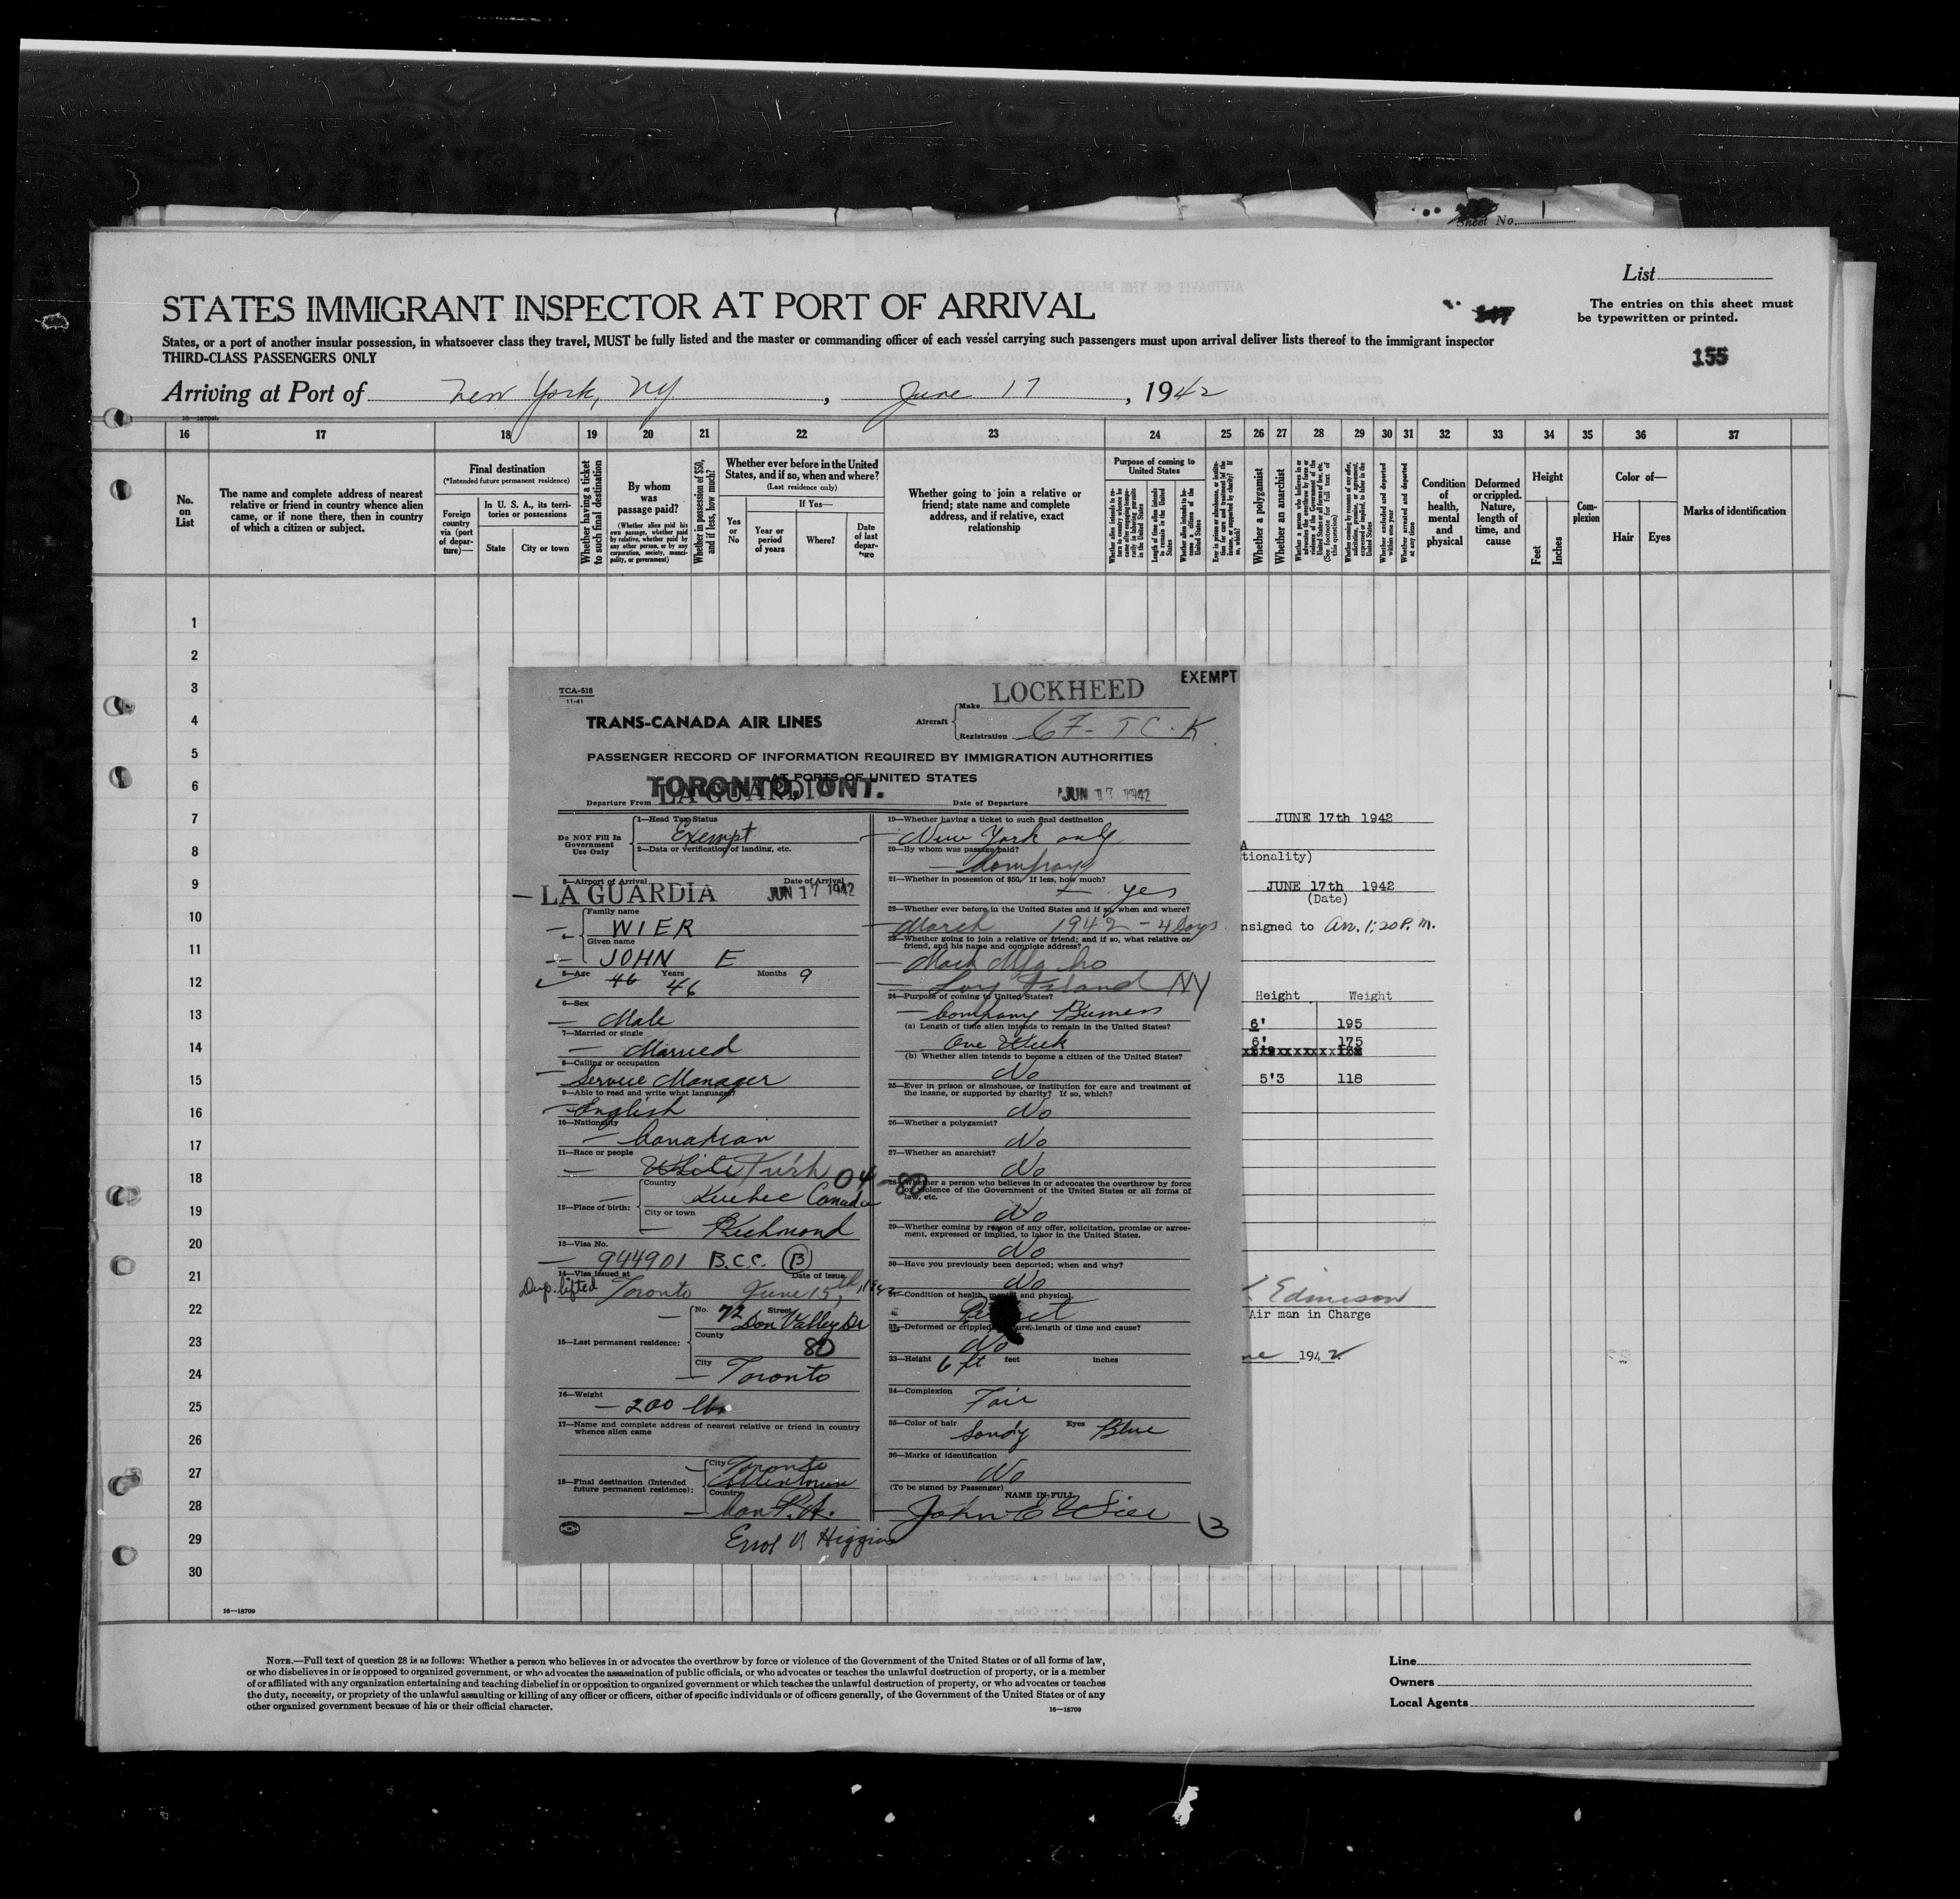 Sheet No. 1
List
STATES IMMIGRANT INSPECTOR AT PORT OF ARRIVAL
The entries on this sheet must
be typewritten or printed.
States, or a port of another insular possession, in whatsoever class they travel, MUST be fully listed and the master or commanding officer of each vessel carrying such passengers must upon arrival deliver lists thereof to the immigrant inspector
THIRD-CLASS PASSENGERS ONLY
155
Arriving at Port of New York, NY, June 17, 1942
16 17 18 19 20 21 22 23 24 25 26 27 28 29 30 31 32 33 34 35 36 37
No. on List
The name and complete address of nearest relative or friend in country whence alien came, or if none there, then in country of which a citizen or subject.
Final destination
(*Intended future permanent residence)
Foreign country via (port of departure)—
In U. S. A., its territories or possessions
State
City or town
Whether having a ticket to such final destination
By whom was passage paid?
(Whether alien paid his own passage, whether paid by relative, whether paid by any other person, or by any corporation, society, municipality, or government)
Whether in possession of $50, and if less, how much?
Whether ever before in the United States, and if so, when and where?
(Last residence only)
Yes or No
If Yes—
Year or period of years
Where?
Date of last departure
Whether going to join a relative or friend; state name and complete address, and if relative, exact relationship
Purpose of coming to United States
Length of time alien intends to remain in the United States
Whether alien intends to become a citizen of the United States
Whether a polygamist
Whether an anarchist
Whether excluded and deported within one year
Whether arrested and deported at any time
Condition of health, mental and physical
Deformed or crippled. Nature, length of time, and cause
Height
Feet
Inches
Complexion
Color of—
Hair
Eyes
Marks of identification
1
2
3
4
5
6
7
8
9
10
11
12
13
14
15
16
17
18
19
20
21
22
23
24
25
26
27
28
29
30
16—18709
TCA-518
11-41
LOCKHEED
EXEMPT
TRANS-CANADA AIR LINES
Aircraft
Make
Registration 67- TC.K
PASSENGER RECORD OF INFORMATION REQUIRED BY IMMIGRATION AUTHORITIES
AT PORTS OF UNITED STATES
TORONTO, ONT.
LA GUARDIA
Departure From
Date of Departure JUN 17 1942
Do NOT Fill In Government Use Only
1—Head Tax Status
Exempt
2—Data or verification of landing, etc.
3—Airport of Arrival
Date of Arrival
LA GUARDIA JUN 17 1942
Family name
WIER
Given name
JOHN E
5—Age 46 Years 46 Months 9
6—Sex
Male
7—Married or single
Married
8—Calling or occupation
Service Manager
9—Able to read and write what languages?
English
10—Nationality
Canadian
11—Race or people
White Irish 04-80
12—Place of birth:
Country
Quebec Canada
City or town
Richmond
13—Visa No.
944901 B.C.C. B
14—Visa issued at
Date of issue
Dup. lifted Toronto June 15th, 1942
15—Last permanent residence:
No. 72 Street Don Valley Dr
County
80
City
Toronto
16—Weight
200 lbs
17—Name and complete address of nearest relative or friend in country whence alien came
18—Final destination (Intended future permanent residence):
City Toronto
Allentown
Country
Can P.A.
Errol Higgins
19—Whether having a ticket to such final destination
New York only
20—By whom was passage paid?
Company
21—Whether in possession of $50. If less, how much?
yes
22—Whether ever before in the United States and if so, when and where?
March 1942 - 4 Days
23—Whether going to join a relative or friend; and if so, what relative or friend, and his name and complete address?
Mack Mfg Co
Long Island NY
24—Purpose of coming to United States?
Company Business
(a) Length of time alien intends to remain in the United States?
One Week
(b) Whether alien intends to become a citizen of the United States?
No
25—Ever in prison or almshouse, or institution for care and treatment of the insane, or supported by charity? If so, which?
No
26—Whether a polygamist?
No
27—Whether an anarchist?
No
28—Whether a person who believes in or advocates the overthrow by force or violence of the Government of the United States or all forms of law, etc.
No
29—Whether coming by reason of any offer, solicitation, promise or agreement, expressed or implied, to labor in the United States.
No
30—Have you previously been deported; when and why?
No
31—Condition of health, and physical.
32—Deformed or crippled, length of time and cause?
No
33—Height 6 ft feet inches
34—Complexion
Fair
35—Color of hair Eyes
Sandy Blue
36—Marks of identification
No
(To be signed by Passenger)
NAME IN FULL
John E Wier
3
JUNE 17th 1942
A
tionality)
JUNE 17th 1942
(Date)
nsigned to Arr. 1:20 P.M.
Height Weight
6' 195
6' 175
5'3 118
Edmison
Air man in Charge
ne 1942
NOTE.—Full text of question 28 is as follows: Whether a person who believes in or advocates the overthrow by force or violence of the Government of the United States or of all forms of law,
or who disbelieves in or is opposed to organized government, or who advocates the assassination of public officials, or who advocates or teaches the unlawful destruction of property, or is a member
of or affiliated with any organization entertaining and teaching disbelief in or opposition to organized government or which teaches the unlawful destruction of property, or who advocates or teaches
the duty, necessity, or propriety of the unlawful assaulting or killing of any officer or officers, either of specific individuals or of officers generally, of the Government of the United States or of any
other organized government because of his or their official character.
16—18709
Line
Owners
Local Agents